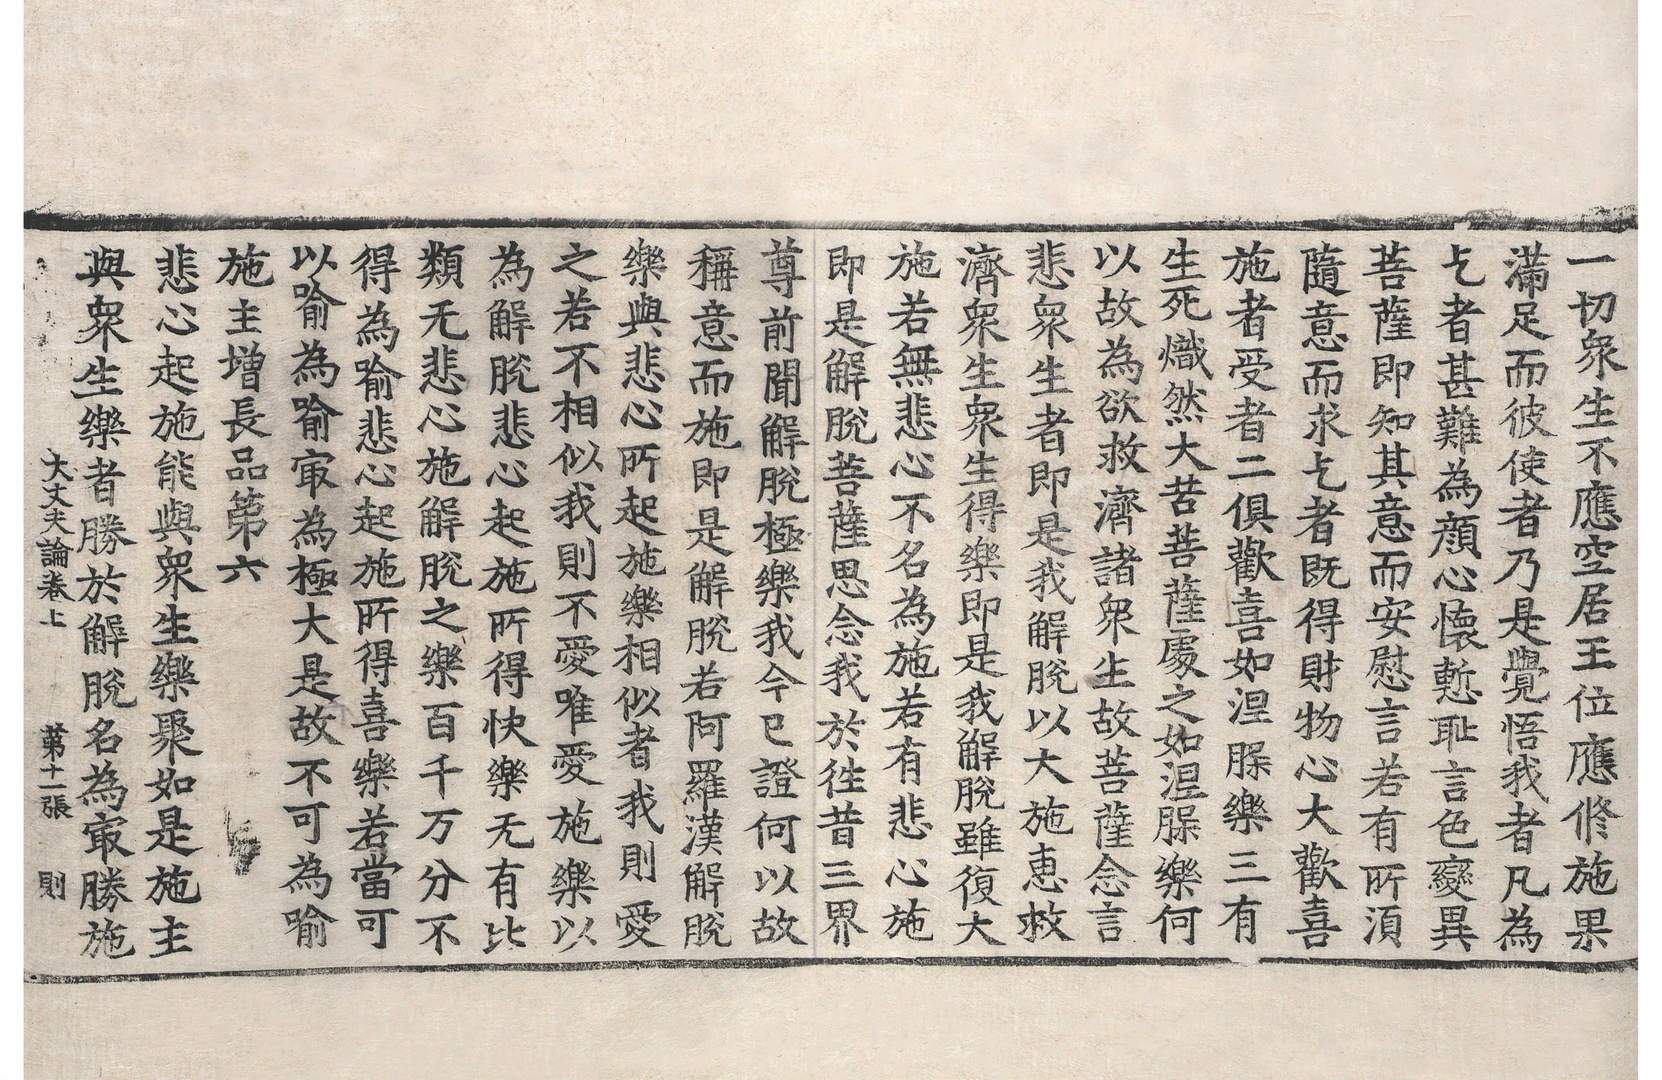 一切衆生不應空居王位應修施果
滿足而彼使者乃是覺悟我者凡為
乞者甚難為顔心懐慙耻言色變異
菩薩即知其意而安慰言若有所須
隨意而求乞者既得財物心大歡喜
施者受者二俱歡喜如涅脲樂三有
生死熾然大苦菩薩處之如涅脲樂何
以故為欲救濟諸衆生故菩薩念言
悲衆生者即是我解脫以大施恵救
濟衆生衆生得樂即是我解脫雖復大
施若無悲心不名為施若有悲心施
即是解脫菩薩思念我於徃昔三界
尊前聞解脫極樂我今已證何以故
稱意而施即是解脫若阿羅漢解脫
樂與悲心所起施樂相似者我則愛
之若不相似我則不愛唯愛施樂以
為解脫悲心起施所得快樂无有比
類无悲心施解脫之樂百千万分不
得為喻悲心起施所得喜樂若當可
以喻為喻㝡為極大是故不可為喻
施主增長品第六
悲心起施能與衆生樂聚如是施主
與衆生樂者勝於解脫名為㝡勝施
大丈夫論卷上 第十一張 則